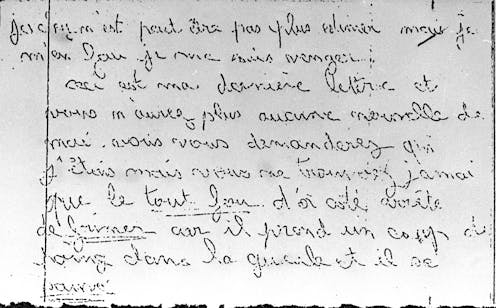 n'est peut être pas plus estimer mais je
m'en fou je me suis venger.
ceci est ma dernière lettre et
vous n'aurez plus aucune nouvelle de
moi. vous vous demanderez qui
j'étais mais vous ne trouverez jamai
que le tout fou d'a coté évite
de frimer car il prend un coup de
poing dans la gueule et il se
sauve